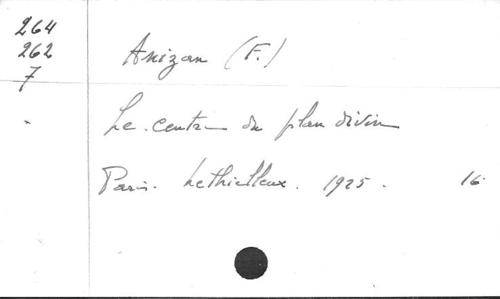 264
262
7
Anizan (F.)
Le centre du plan divin
Paris. Lethielleux. 1925. 16